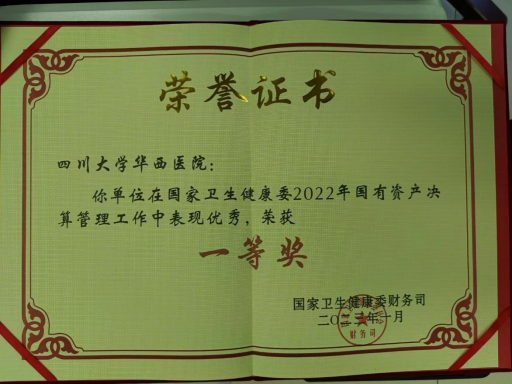 荣誉证书
四川大学华西医院：
你单位在国家卫生健康委2022年国有资产决
算管理工作中表现优秀，荣获
一等奖
国家卫生健康委财务司
二〇二三年一月
财务司